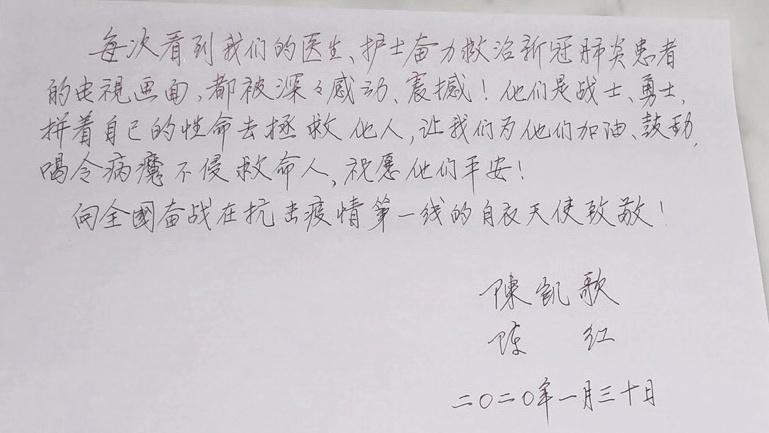 每次看到我们的医生、护士奋力救治新冠肺炎患者
的电视画面,都被深々感动、震撼!他们是战士、勇士,
拼着自己的性命去拯救他人,让我们为他们加油、鼓劲,
喝令病魔不侵救命人,祝愿他们平安!
向全國奋战在抗击疫情第一线的白衣天使致敬!
陳凱歌
陈 红
二〇二〇年一月三十日